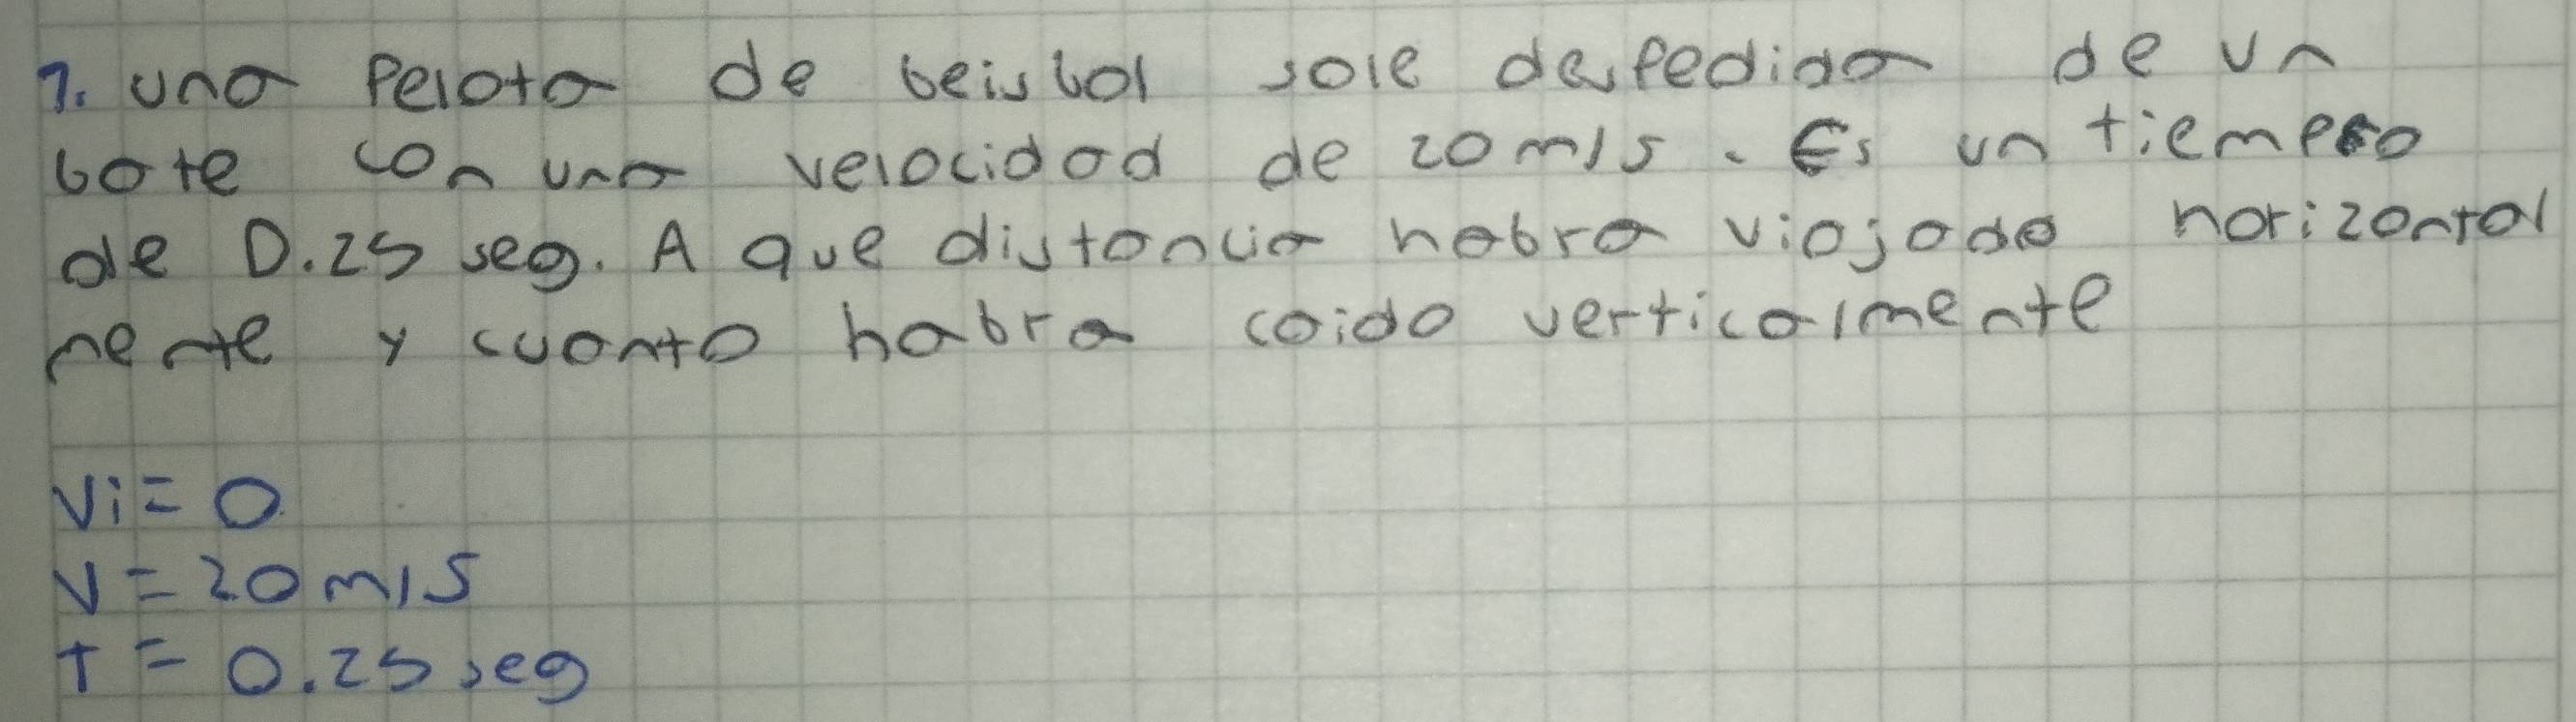 1. una Pelota de beisbol sale despedida de un
bate con una velocidad de 20 m/s. Es un tiempo
de 0.25 seg. A que distancia habra viajado horizontal
mente y cuanto habra caido verticalmente
Vi = 0
V = 20 m/s
T = 0.25 seg